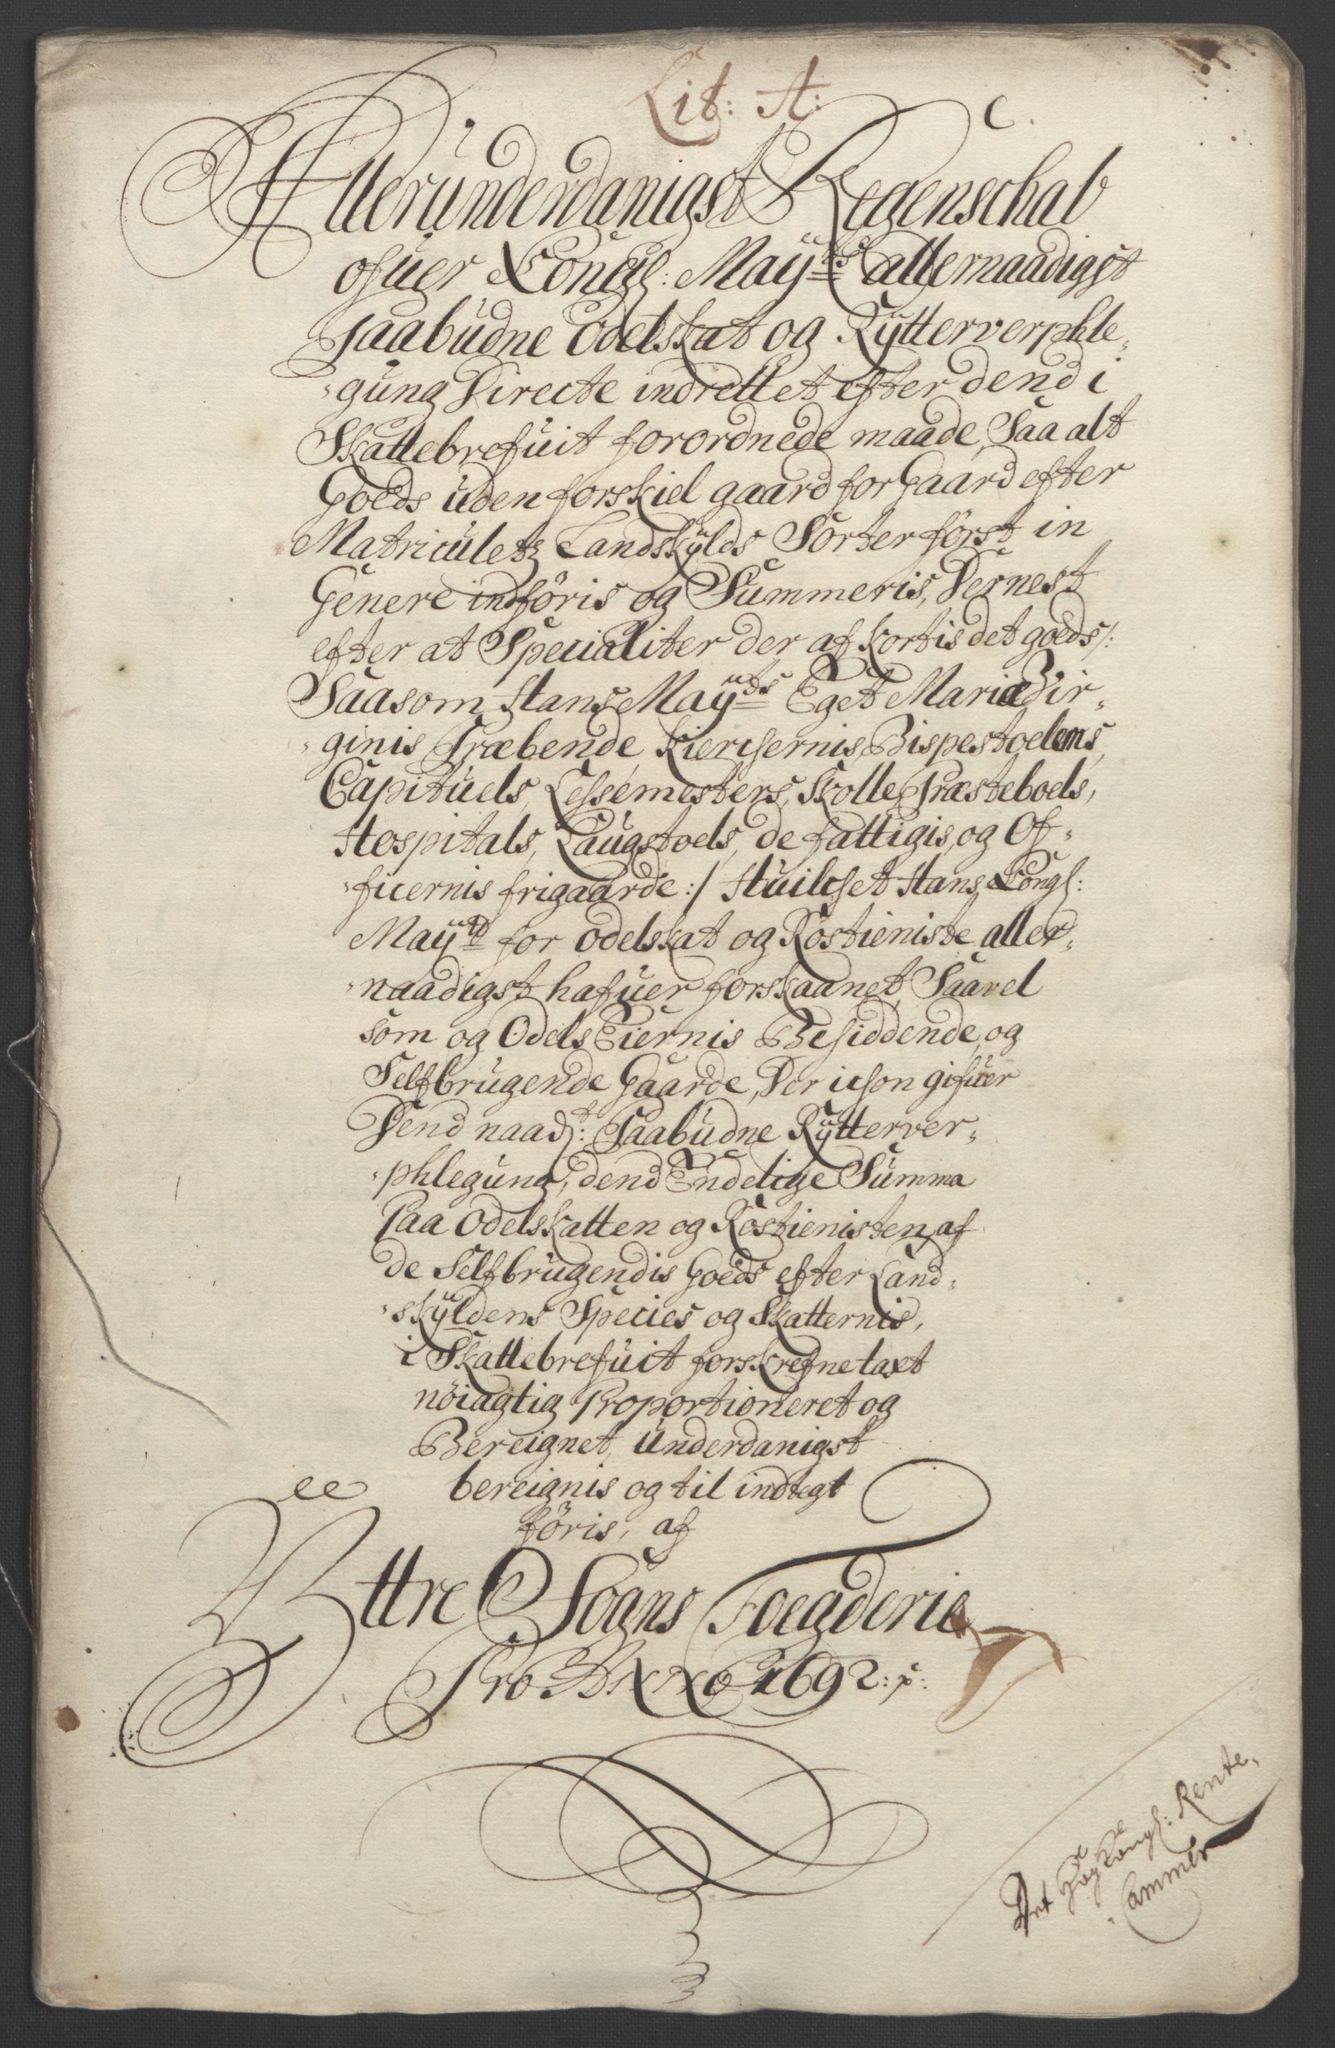 Lit: A:
Allerunderdanigst Regenschab
ofuer Kongl: Mayts allernaadigst
paabudne Odelskat og Rytterverphle-
-gung Directe indrettet efter dend i
Skattebrefuit forordnede maade, Saa alt
Goeds uden forskiel gaard for Gaard efter
Matriculetz Landskylds Sorter först in
Genere indföris og Summeris, Dernest
efter at Specialiter der af kortis det goeds /:
Saasom Hans Mayts Eget Mariæ Vir-
-ginis Præbende, Kierchernis, Bispestoelens,
Capituels, Lessemesters, Skolle, Præsteboels,
Hospitals, Laugstoels, de fattigis, og Of-
-ficernis frigaarde :/ Huilchet Hans Kongl:
Mayts for Odelskat og Rostieniste aller-
-naadigst hafuer forskaanet, Saavel
som og Odels Eiernis Besiddende og
Selfbrugende Gaarde, Der ichon gifuer
Dend naadt: Paabudne Rytterver-
-phlegung, dend Endelige Summa
Paa Odelskatten og Rostienisten af
de Selfbrugendis Goeds efter Land-
-skyldens Species og Skatternis,
i Skattebrefuit forskrefne taxt
nöiagtig Proportioneret og
Bereignet, underdanigst
bereignis og til indtegt
föris, af
Yttre Sogns Foegderie
Pro Anno 1692:
Det Høy Kongl: Rente-
-Cammer